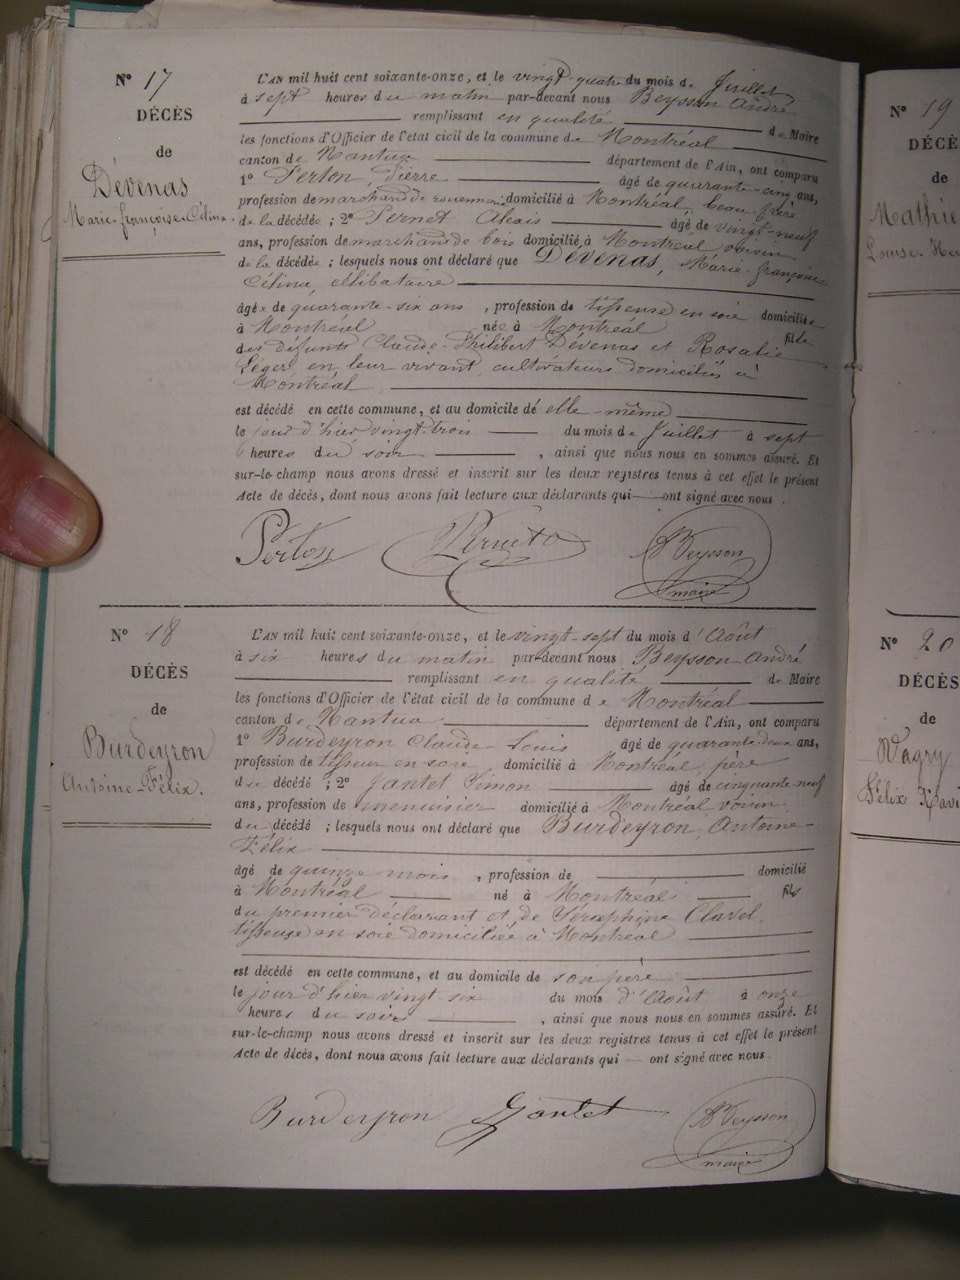 N° 17
DÉCÈS
de
Dévenas
Marie-françoise-Célina.
L'AN mil huit cent soixante-onze, et le vingt-quatre du mois de Juillet
à sept heures du matin par-devant nous Beysson André
remplissant en qualité de Maire
les fonctions d'Officier de l'état civil de la commune de Montréal
canton de Nantua département de l'Ain, ont comparu
1° Perton, Pierre âgé de quarante-cinq ans,
profession de marchand de rouennerie domicilié à Montréal, beau frère
de la décédée ; 2° Pernet âgé de vingt-neuf
ans, profession de marchand de bois domicilié à Montréal voisin
de la décédée ; lesquels nous ont déclaré que DÉVENAS, Marie-françoise
Célina, célibataire
âgée de quarante-six ans , profession de tisseuse en soie domiciliée
à Montréal née à Montréal fille
des défunts Claude-Philibert Dévenas et Rosalie
Léger, en leur vivant, cultivateurs domiciliés à
Montréal
est décédé en cette commune, et au domicile dé elle-même
le jour d'hier vingt-trois du mois de Juillet à sept
heures du soir , ainsi que nous nous en sommes assuré. Et
sur-le-champ nous avons dressé et inscrit sur les deux registres tenus à cet effet le présent
Acte de décès, dont nous avons fait lecture aux déclarants qui ont signé avec nous .
Perton Beysson
maire
N° 18
DÉCÈS
de
Burdeyron
Antoine-Félix.
L'AN mil huit cent soixante-onze, et le vingt-sept du mois d'Août
à six heures du matin par-devant nous Beysson André
remplissant en qualité de Maire
les fonctions d'Officier de l'état civil de la commune de Montréal
canton de Nantua département de l'Ain, ont comparu
1° Burdeyron Claude-Louis âgé de quarante deux ans,
profession de tisseur en soie domicilié à Montréal, père
du décédé ; 2° Jantet Simon âgé de cinquante-neuf
ans, profession de menuisier domicilié à Montréal voisin
du décédé ; lesquels nous ont déclaré que Burdeyron, Antoine-
Félix
âgé de quinze mois , profession de domicilié
à Montréal né à Montréal fils
du premier déclarant et de Séraphine Clavel,
tisseuse en soie domiciliée à Montréal
est décédé en cette commune, et au domicile de son père
le jour d'hier vingt-six du mois d'Août à onze
heures du soir , ainsi que nous nous en sommes assuré. Et
sur-le-champ nous avons dressé et inscrit sur les deux registres tenus à cet effet le présent
Acte de décès, dont nous avons fait lecture aux déclarants qui ont signé avec nous.
Burdeyron Jantet Beysson
maire
N° 19
DÉCÈ
de
Mathie
Louise-
N° 20
DÉCÈS
de
Vagry
Félix Xavi